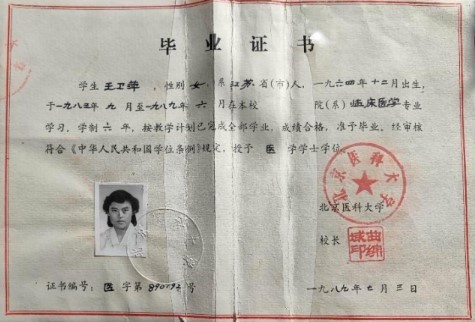 毕业证书
学生 王卫 ,性别 女 ,系 江苏 省(市)人,一九六四年十二月出生,
于一九八三年九月至一九八九年六月在本校 院(系)临床医学专业
学习,学制六年,按教学计划已完成全部学业,成绩合格,准予毕业。经审核
符合《中华人民共和国学位条例》规定,授予 医 学学士学位。
北京医科大学
北京医科大学
校长
曲绵域印
证书编号: 医 字第 号
一九八九年七月三日